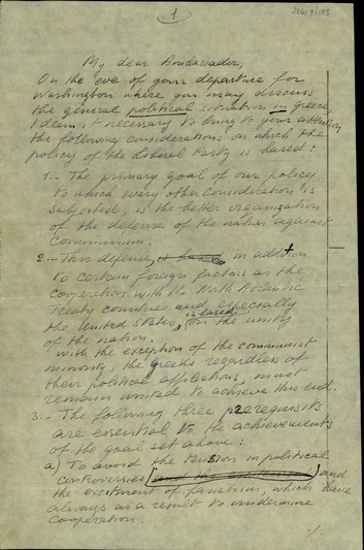 1
My dear Ambassador,
On the eve of your departure for
Washington where you may discuss
the general political situation in Greece
I deem it necessary to bring to your attention
the following considerations on which the
policy of the Liberal Party is based:
1.- The primary goal of our policy
to which every other consideration is
subjected, is the better organization
of the defense of the nation against
Communism.
2.- This defense, is based, in addition
to certain foreign factors as the
cooperation with the North Atlantic
Treaty countries and especially
the United States, is based on the unity
of the nation.
With the exception of the communist
minority, the Greeks regardless of
their political affiliations, must
remain united to achieve this end.
3.- The following three prerequisits
are essential to the achievements
of the goal set above:
a) To avoid the tension in political
controversies and the and
the excitment of fanatism, which have
always as a result to undermine
cooperation.
./.